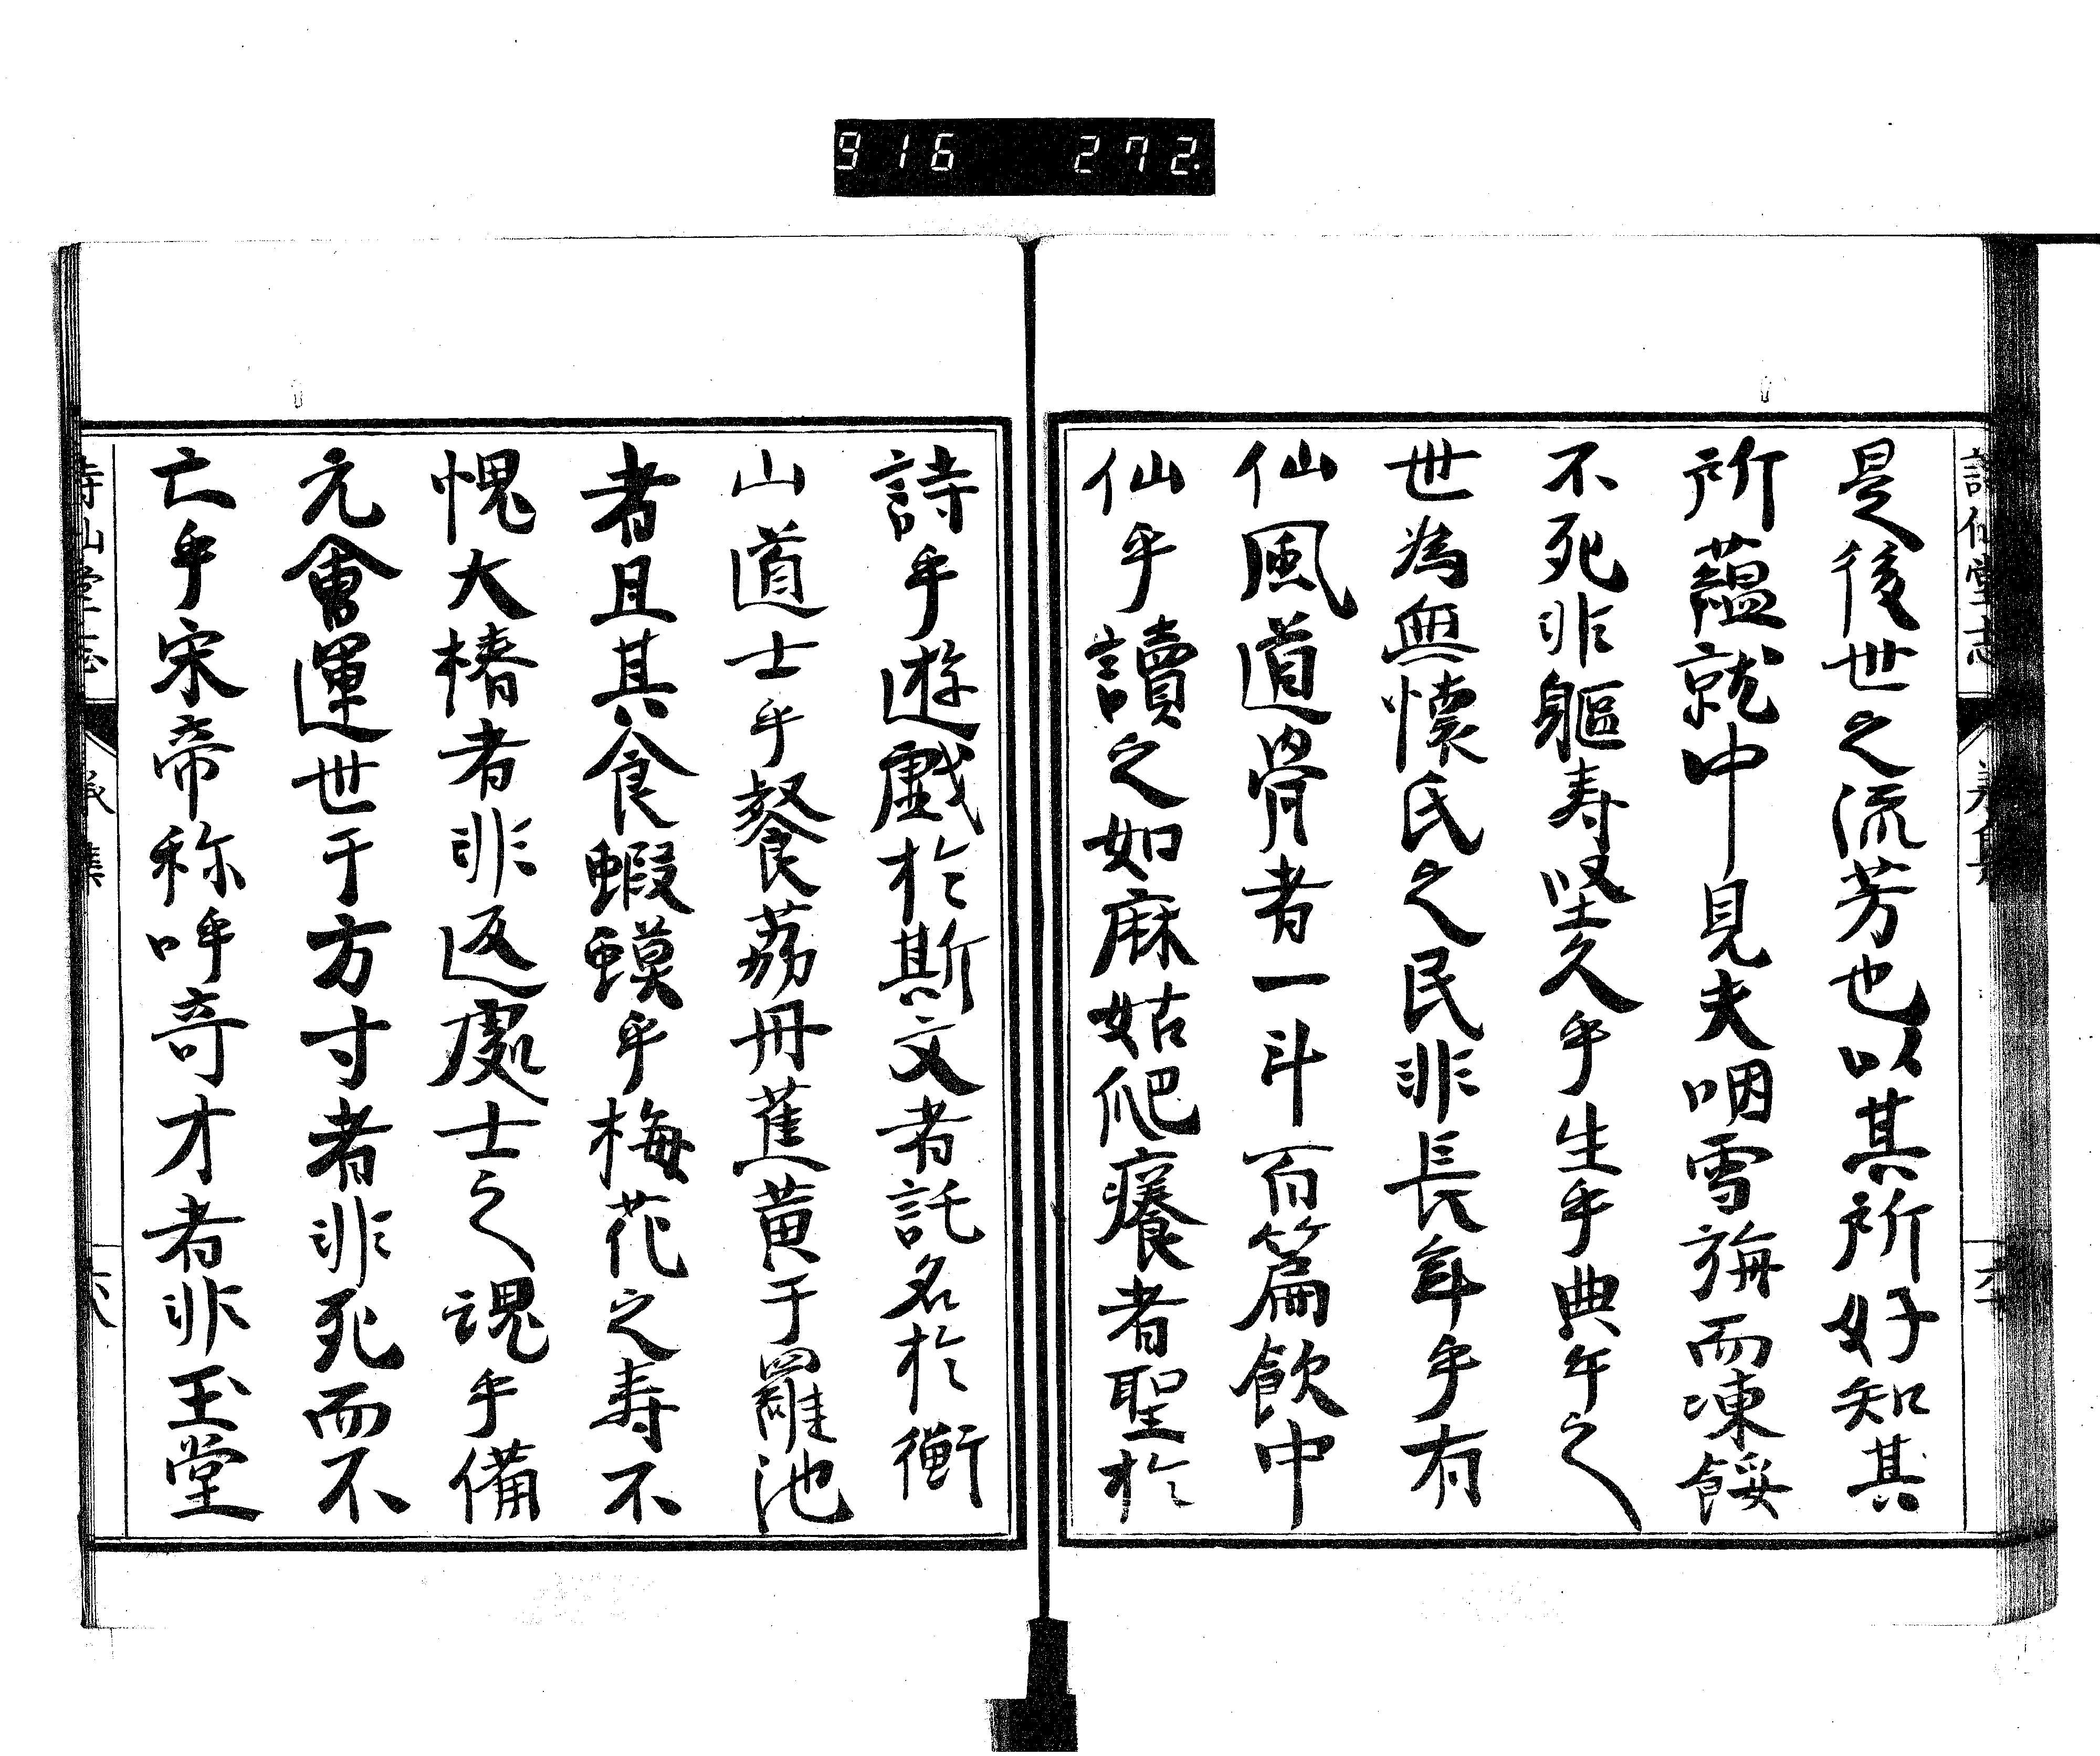 916 272.
是後世之流芳也以其所好知其
所蘊就中見夫咽雪旃而凍餒
不死非軀寿堅久乎生乎典午之
世為無懷氏之民非長年乎有
仙風道骨者一斗百篇飲中
仙乎讀之如麻姑爬癢者聖於
詩乎遊戲於斯文者託名於衡
山道士乎餐荔丹蕉黄于羅池
者且其食蝦蟆乎梅花之寿不
愧大椿者非返處士之魂乎備
元會運世于方寸者非死而不
亡乎宋帝称呼奇才者非玉堂